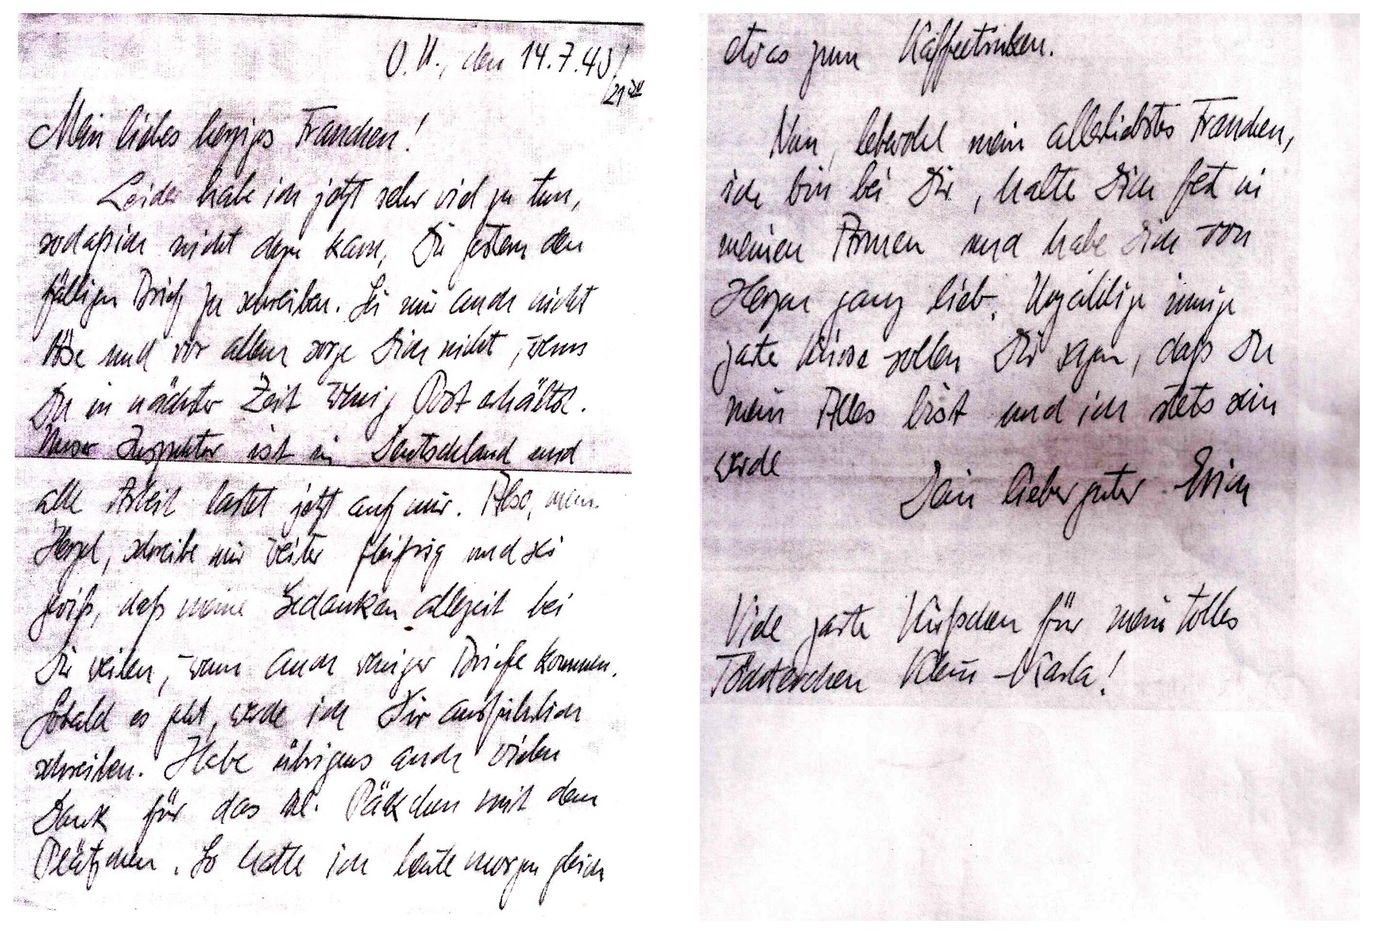 O.U., den 14.7.43/
21⁰⁰
Mein liebes herziges Frauchen!
Leider habe ich jetzt sehr viel zu tun,
sodaß ich nicht dazu kam, Dir gestern den
fälligen Brief zu schreiben. Sei mir auch nicht
böse und vor allem sorge Dich nicht, wenn
Du in nächster Zeit wenig Post erhältst.
Unser Inspektor ist in Deutschland und
alle Arbeit lastet jetzt auf mir. Also, mein
Herzel, schreibe mir weiter fleißig und sei
gewiß, daß meine Gedanken allezeit bei
Dir weilen, wenn auch weniger Briefe kommen.
Sobald es geht, werde ich Dir ausführlich
schreiben. Habe übrigens auch vielen
Dank für das kl. Päckchen mit den
Plätzchen. So hatte ich heute morgen gleich
etwas zum Kaffeetrinken.
Nun, lebwohl mein allerliebstes Frauchen,
ich bin bei Dir, halte Dich fest in
meinen Armen und habe Dich von
Herzen ganz lieb. Unzählige innige
zarte Küsse sollen Dir sagen, daß Du
mein Alles bist und ich stets sein
werde
Dein lieber guter Erich
Viele zarte Küßchen für mein tolles
Töchterchen Klein-Karla!